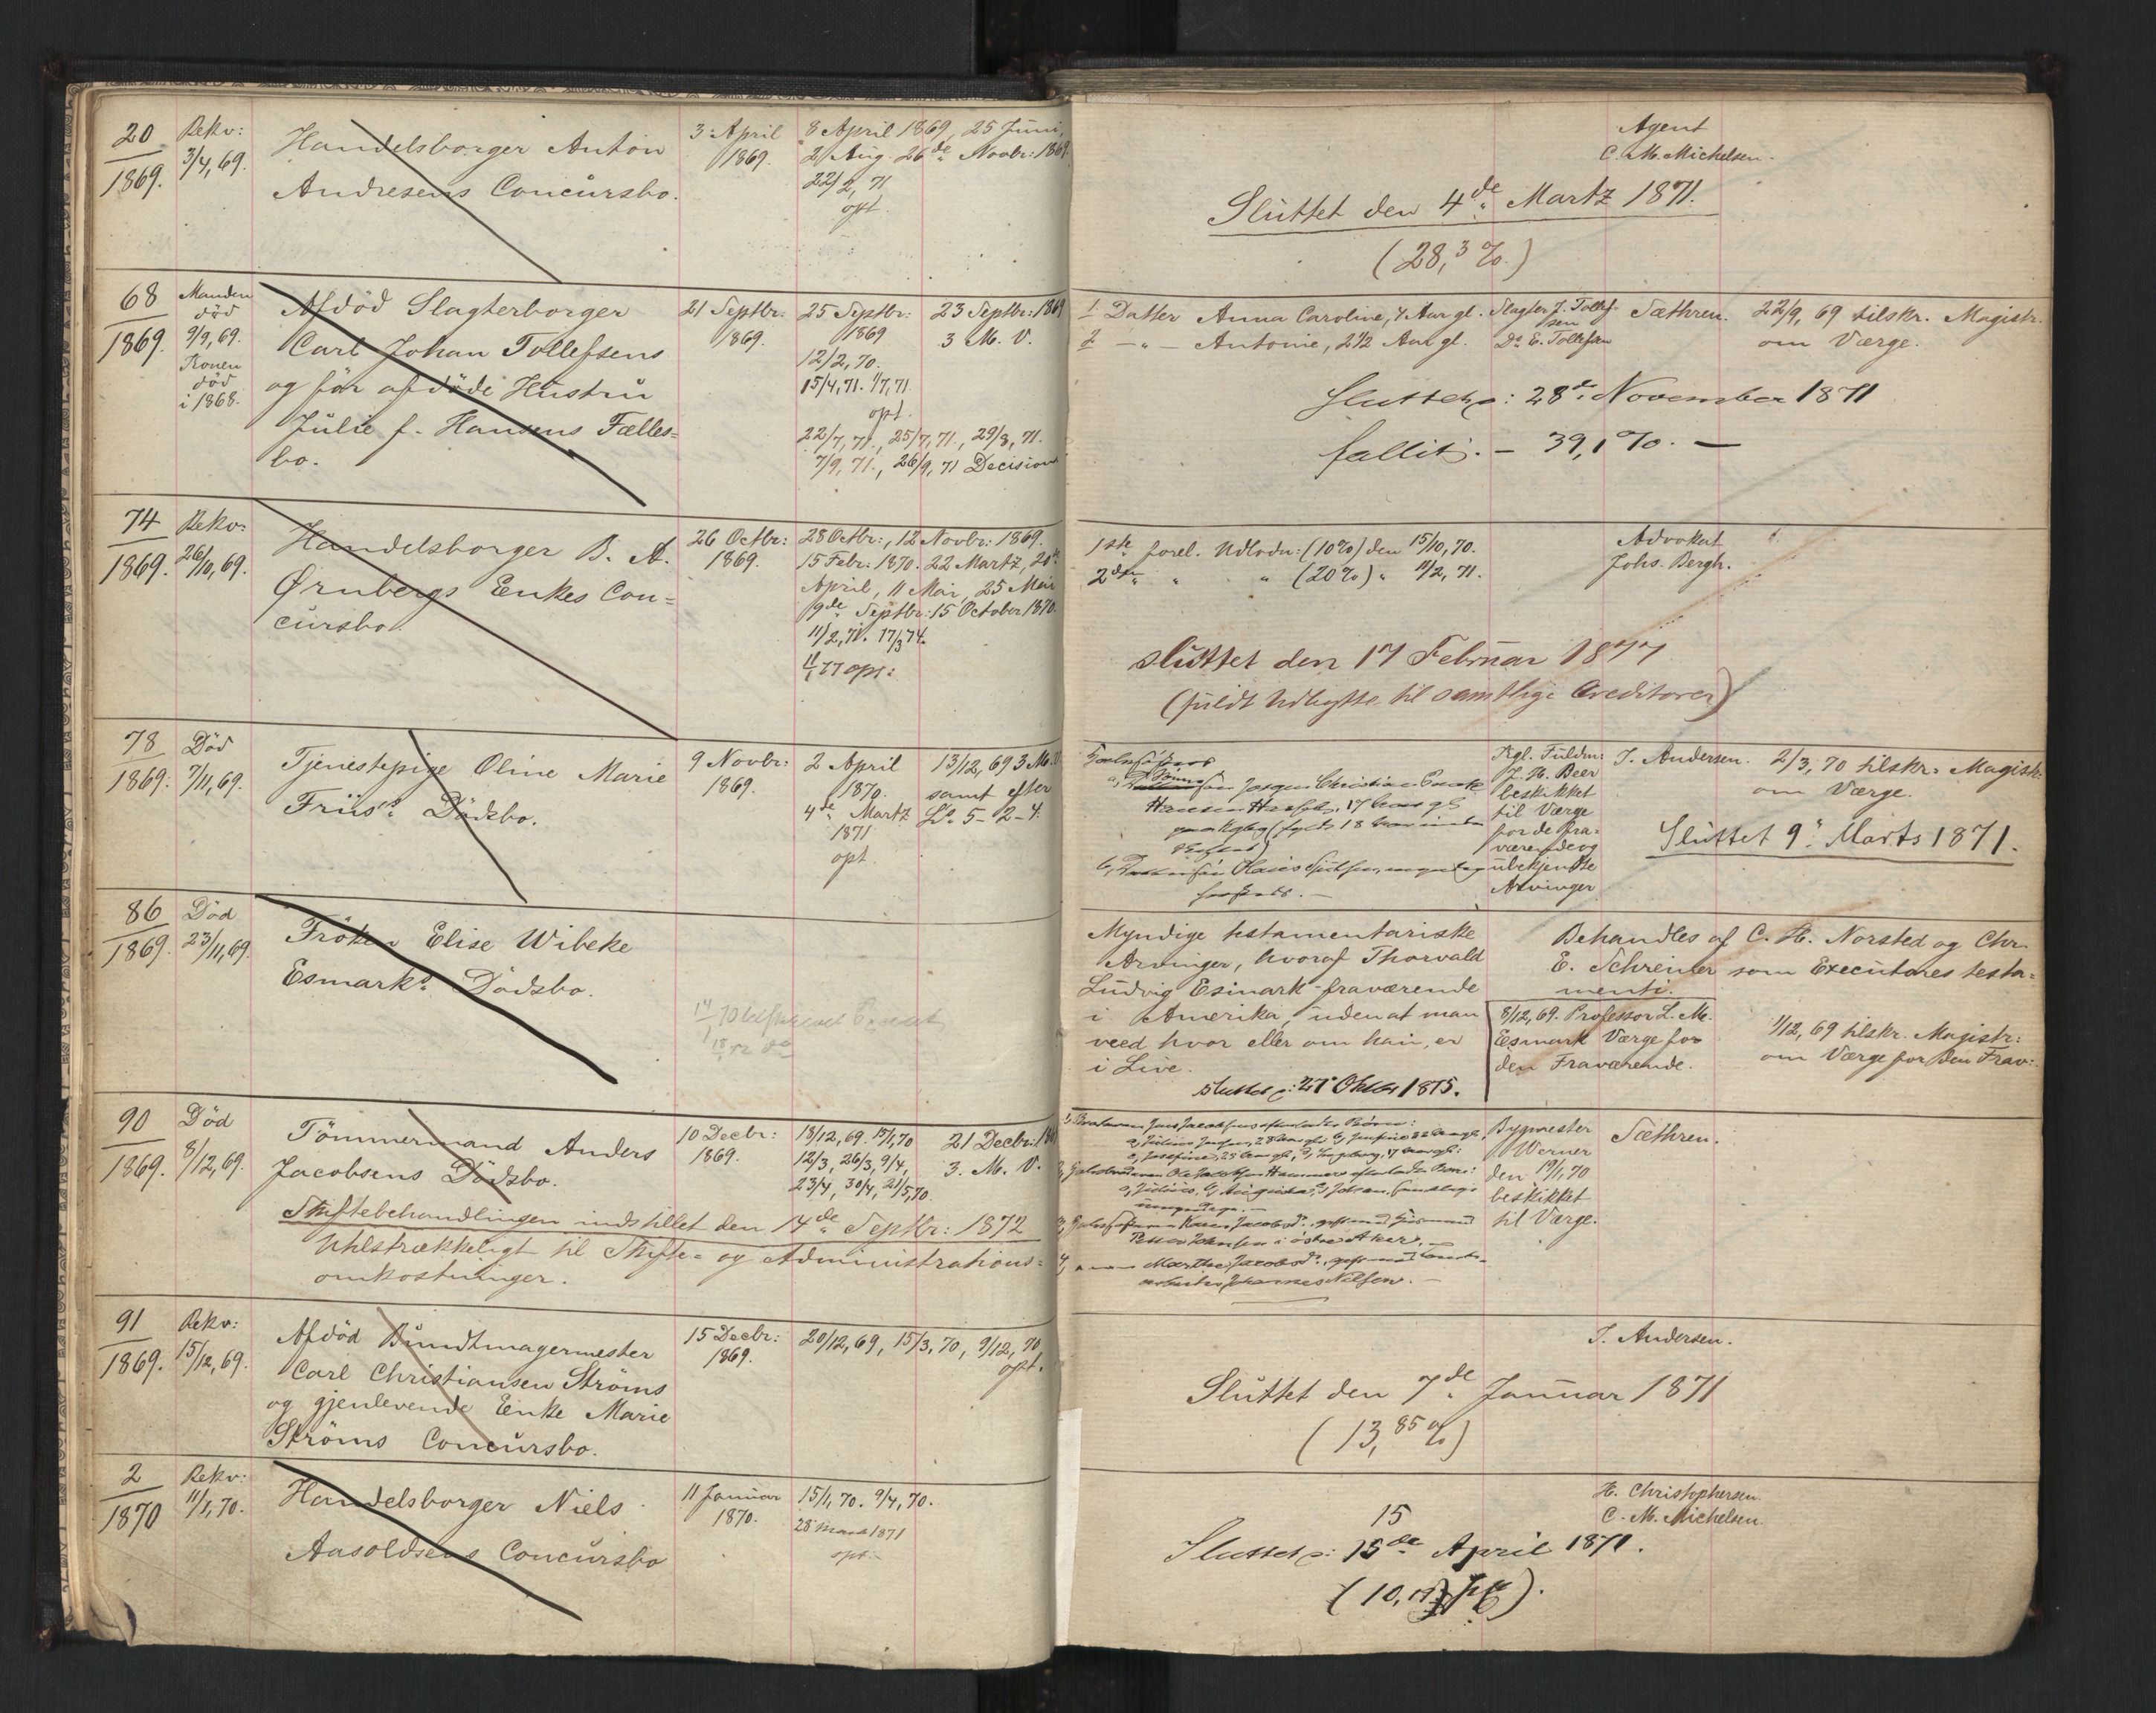 20
1869.
Rekv:
3/4, 69.
Handelsborger Anton
Andresens Concursbo.
3: April
1869.
8 April 1869, 25 Juni,
2 Aug. 26de Novbr: 1869.
22/2, 71
opt.
Agent
C. M. Michelsen.
Sluttet den 4de Martz 1871.
(28,3 %)
68
1869.
Manden
död
9/9, 69.
Konen
död
i 1868.
Afdöd Slagterborger
Carl Johan Tollefsens
og för afdöde Hustru
Julie f. Hansens Fælles=
bo.
21 Septbr:
1869.
25 Septbr:
1869
12/2, 70.
15/4, 71. 1/7, 71.
opt.
22/7, 71., 25/7, 71., 29/8, 71.
7/9, 71., 26/9, 71 Decision
23 Septbr: 1869
3 M. V.
1 Datter Anna Caroline, 7 Aar gl.
2 -"- Antonie, 2 1/2 Aar gl.
Slagter J. Tollef-
sen
Do E. Tollefsen
Sæthren.
22/9, 69 tilskr. Magistr.
om Værge.
Sluttet p: 28de November 1871
fallit. - 39,1 %. -
74
1869.
Rekv:
26/10, 69.
Handelsborger B. A.
Ørnbergs Enkes Con=
cursbo.
26 Octbr:
1869.
28 Octbr:, 12 Novbr: 1869.
15 Febr: 1870. 22 Martz, 20de
April, 11 Mai, 25 Mai
9de Septbr: 15 October 1870.
11/2, 71. 17/3 74.
11/1 77 opt:
1ste forel. Udlodn: (10%) den 15/10, 70.
2den " " (20%) " 11/2, 71.
Advokat
Johs. Bergh.
sluttet den 17 Februar 1877
(fuldt Udbytte til samtlige Creditorer)
78
1869.
Död
7/11, 69.
Tjenestepige Oline Marie
Friis's Dödsbo.
9 Novbr:
1869.
2 April
1870.
4de Martz
1871
opt.
13/12, 69 3 M. V.
samt efter
L. 5-2-4.
Jørgen Christian
Hansen
17 Aar gl.
Kgl. Fuldm:
J. H. Beer
beskikket
til Værge
for de fra=
værende og
ubekjendte
Arvinger
J. Andersen.
2/3, 70 tilskr: Magistr:
om Værge.
Sluttet 9: Marts 1871.
86
1869.
Död
23/11, 69.
Fröken Elise Wibeke
Esmarks Dödsbo.
Myndige testamentariske
Arvinger, hvoraf Thorvald
Ludvig Esmark fraværende
i Amerika, uden at man
veed hvor eller om han er
i Live.
Sluttet p: 27 Oktbr 1875.
Behandles af C. H. Norsted og Chr.
E. Schreiner som Executores testa=
menti.
8/12, 69. Professor L. M.
Esmark Værge for
den Fraværende.
1/12, 69 tilskr. Magistr:
om Værge for den Frav:
90
1869.
Död
8/12, 69.
Tömmermand Anders
Jacobsens Dödsbo.
10 Decbr:
1869.
18/12, 69. 15/1, 70
12/3, 26/3, 9/4,
23/4, 30/4, 21/5, 70.
21 Decbr: 1869
3. M. V.
Skiftebehandlingen indstillet den 14de Septbr: 1872
Utilstrækkeligt til Skifte= og Administrations=
omkostninger.
Petter Johnsen i östre Aker,
Marthe Jacobsd.
Johannes Nilsen. -
Bymester
Werner
den 19/1, 70
beskikket
til Værge.
Sæthren.
91
1869.
Rekv:
15/12, 69.
Afdöd Bundtmagermester
Carl Christiansen Ströms
og gjenlevende Enke Marie
Ströms Concursbo.
15 Decbr:
1869.
20/12, 69, 15/3, 70, 9/12, 70
opt.
J. Andersen.
Sluttet den 7de Januar 1871
(13,85 %)
2
1870
Rekv:
11/1, 70.
Handelsborger Niels
Aasoldsens Concursbo
11 Januar
1870.
15/1, 70. 9/4, 70.
28 Marts 1871
opt.
H. Christophersen.
C. M. Michelsen.
15
Sluttet p: 15de April 1871.